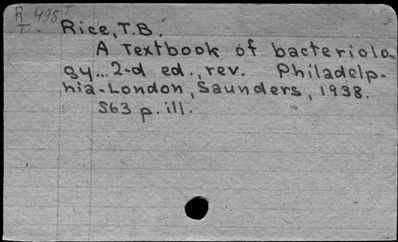 R 498
T
Rice, T.B.
A Textbook of bacteriolo-
gy... 2-d ed., rev. Philadelp-
hia-London, Saunders, 1938.
563 p. ill.